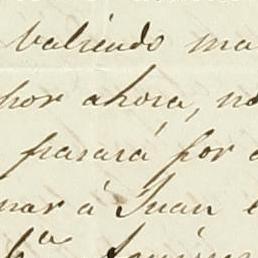 valiendo ma
por ahora, no
pasará por
nar á Juan